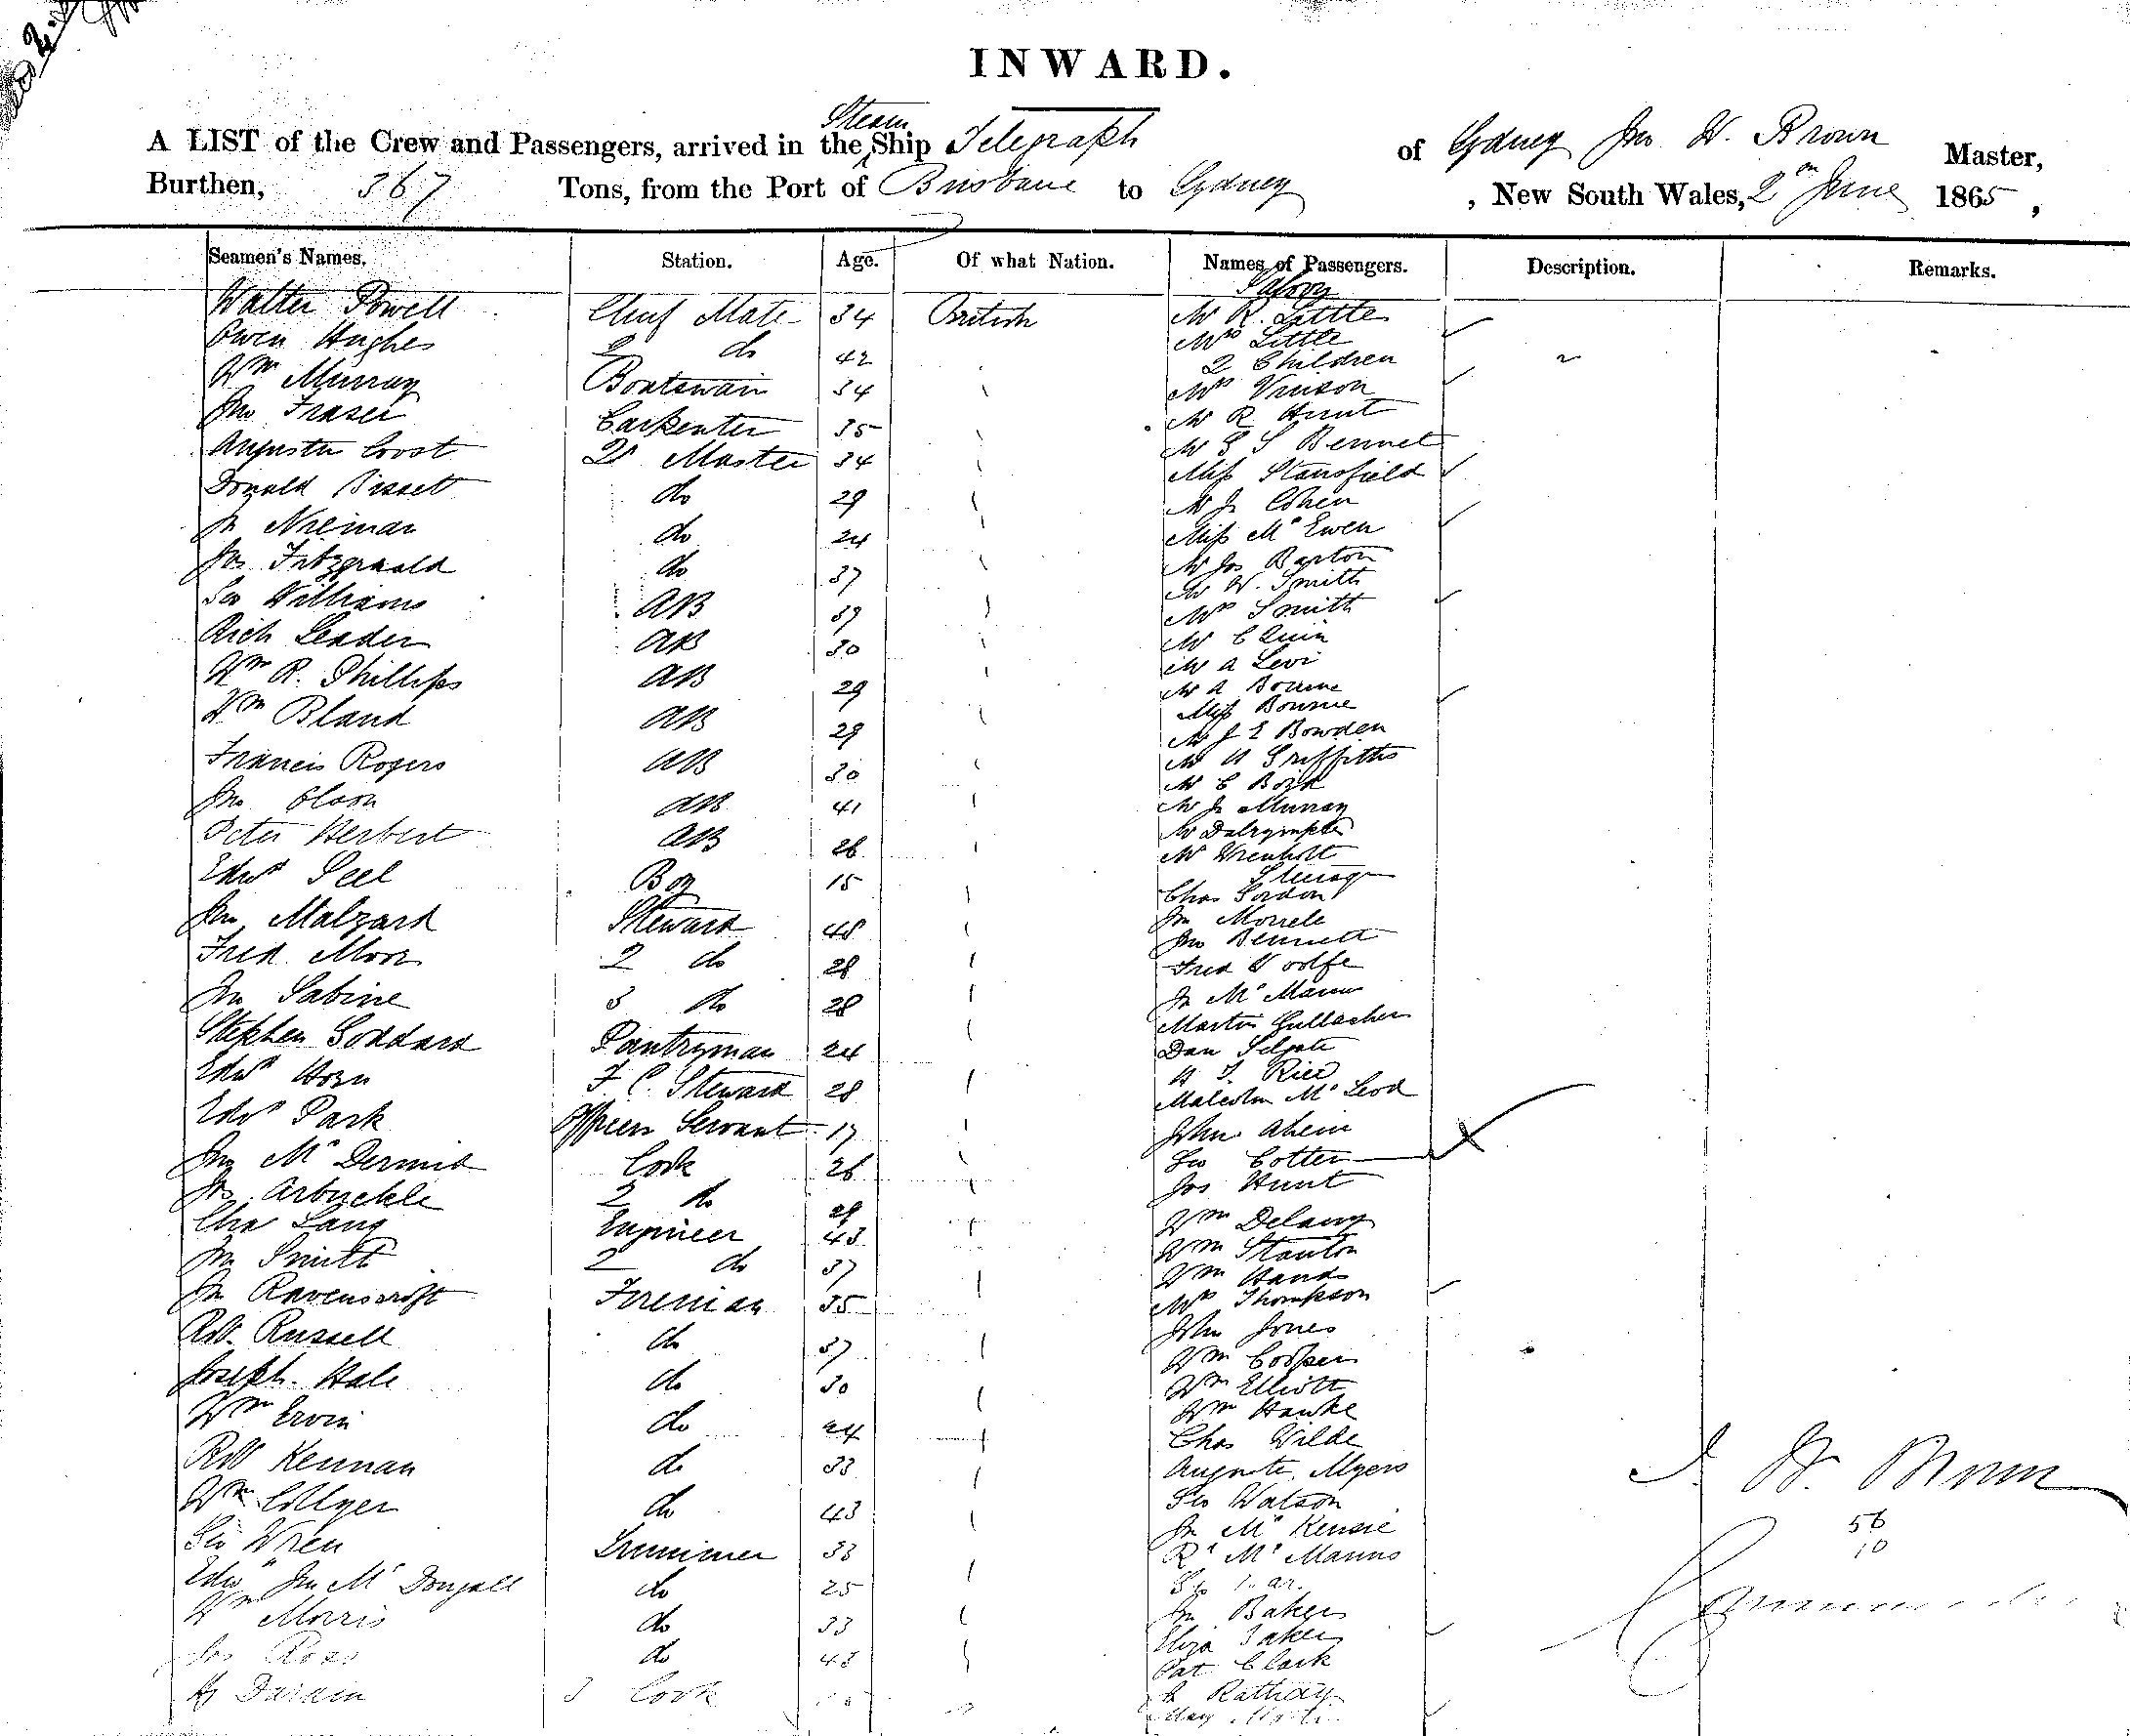 INWARD.
Steam
A LIST of the Crew and Passengers, arrived in the Ship Telegraph of Sydney Jno W. Brown Master,
Burthen, 367 Tons, from the Port of Brisbane to Sydney, New South Wales, 2 June 1865,
Seamen's Names. Station. Age. Of what Nation. Names of Passengers. Description. Remarks.
Saloon
Walter Powell Chief Mate 34 British Mr R. Little
Owen Hughes 2 do 42 Mrs Little
2 Children
Wm Murray Boatswain 34 Mrs Vinson
Jno Fraser Carpenter 35 Mr R Hunt
Mr Bennet
Master 34
Miss Stansfield
Donald Bisset do 29 Mr J. Cohen
do 24 Miss McEwen
Jno Fitzgerald do 37 Mr Jos Barton
Mr W. Smith
Geo Williams AB 39 Mrs Smith
Rich Leader AB 30 Mr C Quin
Mr A Levi
Wm R. Phillips AB 29 Mr A Bourne
Miss Bourne
Wm Bland AB 29 Mr J E Bowden
Francis Rogers AB 30 Mr H Griffiths
Mr C
Jno Olson AB 41 Mr J. Murray
Peter Herbert AB 26 Mr Dalrymple
Mr
Edwd Peel Boy 15 Steerage
Chas Gordon
Jno Malzard Steward 48 Jno
Jno Bennett
Fred. Moor 2 do 28 Fred Woolfe
Jno Sabine 3 do 28 Jn McManus
Stephen Goddard Pantryman 24 Martin Gallacher
Dan
Edwd Horn F. C. Steward 28 H. J. Rice
Malcolm McLeod
Edwd Park Officers Servant 17 John Ahern
Jno McDermid Cook 26 Geo Cotter
Js Arbuckle 2 do 29 Jos Hunt
Chas Lang Engineer 43 Wm Delany
Jno Smith 2 do 37 Wm Stanton
Wm Hands
Jn Ravenscroft Fireman 35 Mrs Thompson
Robt. Russell do 37 John Jones
Wm Cooper
Joseph Hale do 30 Wm Elliott
Wm Ervin do 24 Wm Hawke
Chas Wilde
Robt Kennan do 33 Myers
J. W. Brown
Wm Collyer do 43 Geo Watson
56
Geo Wren Trimmer 33 Jn McKenzie
10
Rt McManus
Edwd Jno McDougall do 25
Wm Morris do 33 Jn Baker
Eliza Baker
Jas Ross do 43 Pat Clark
Hy Durkin 3 Cook
Mary